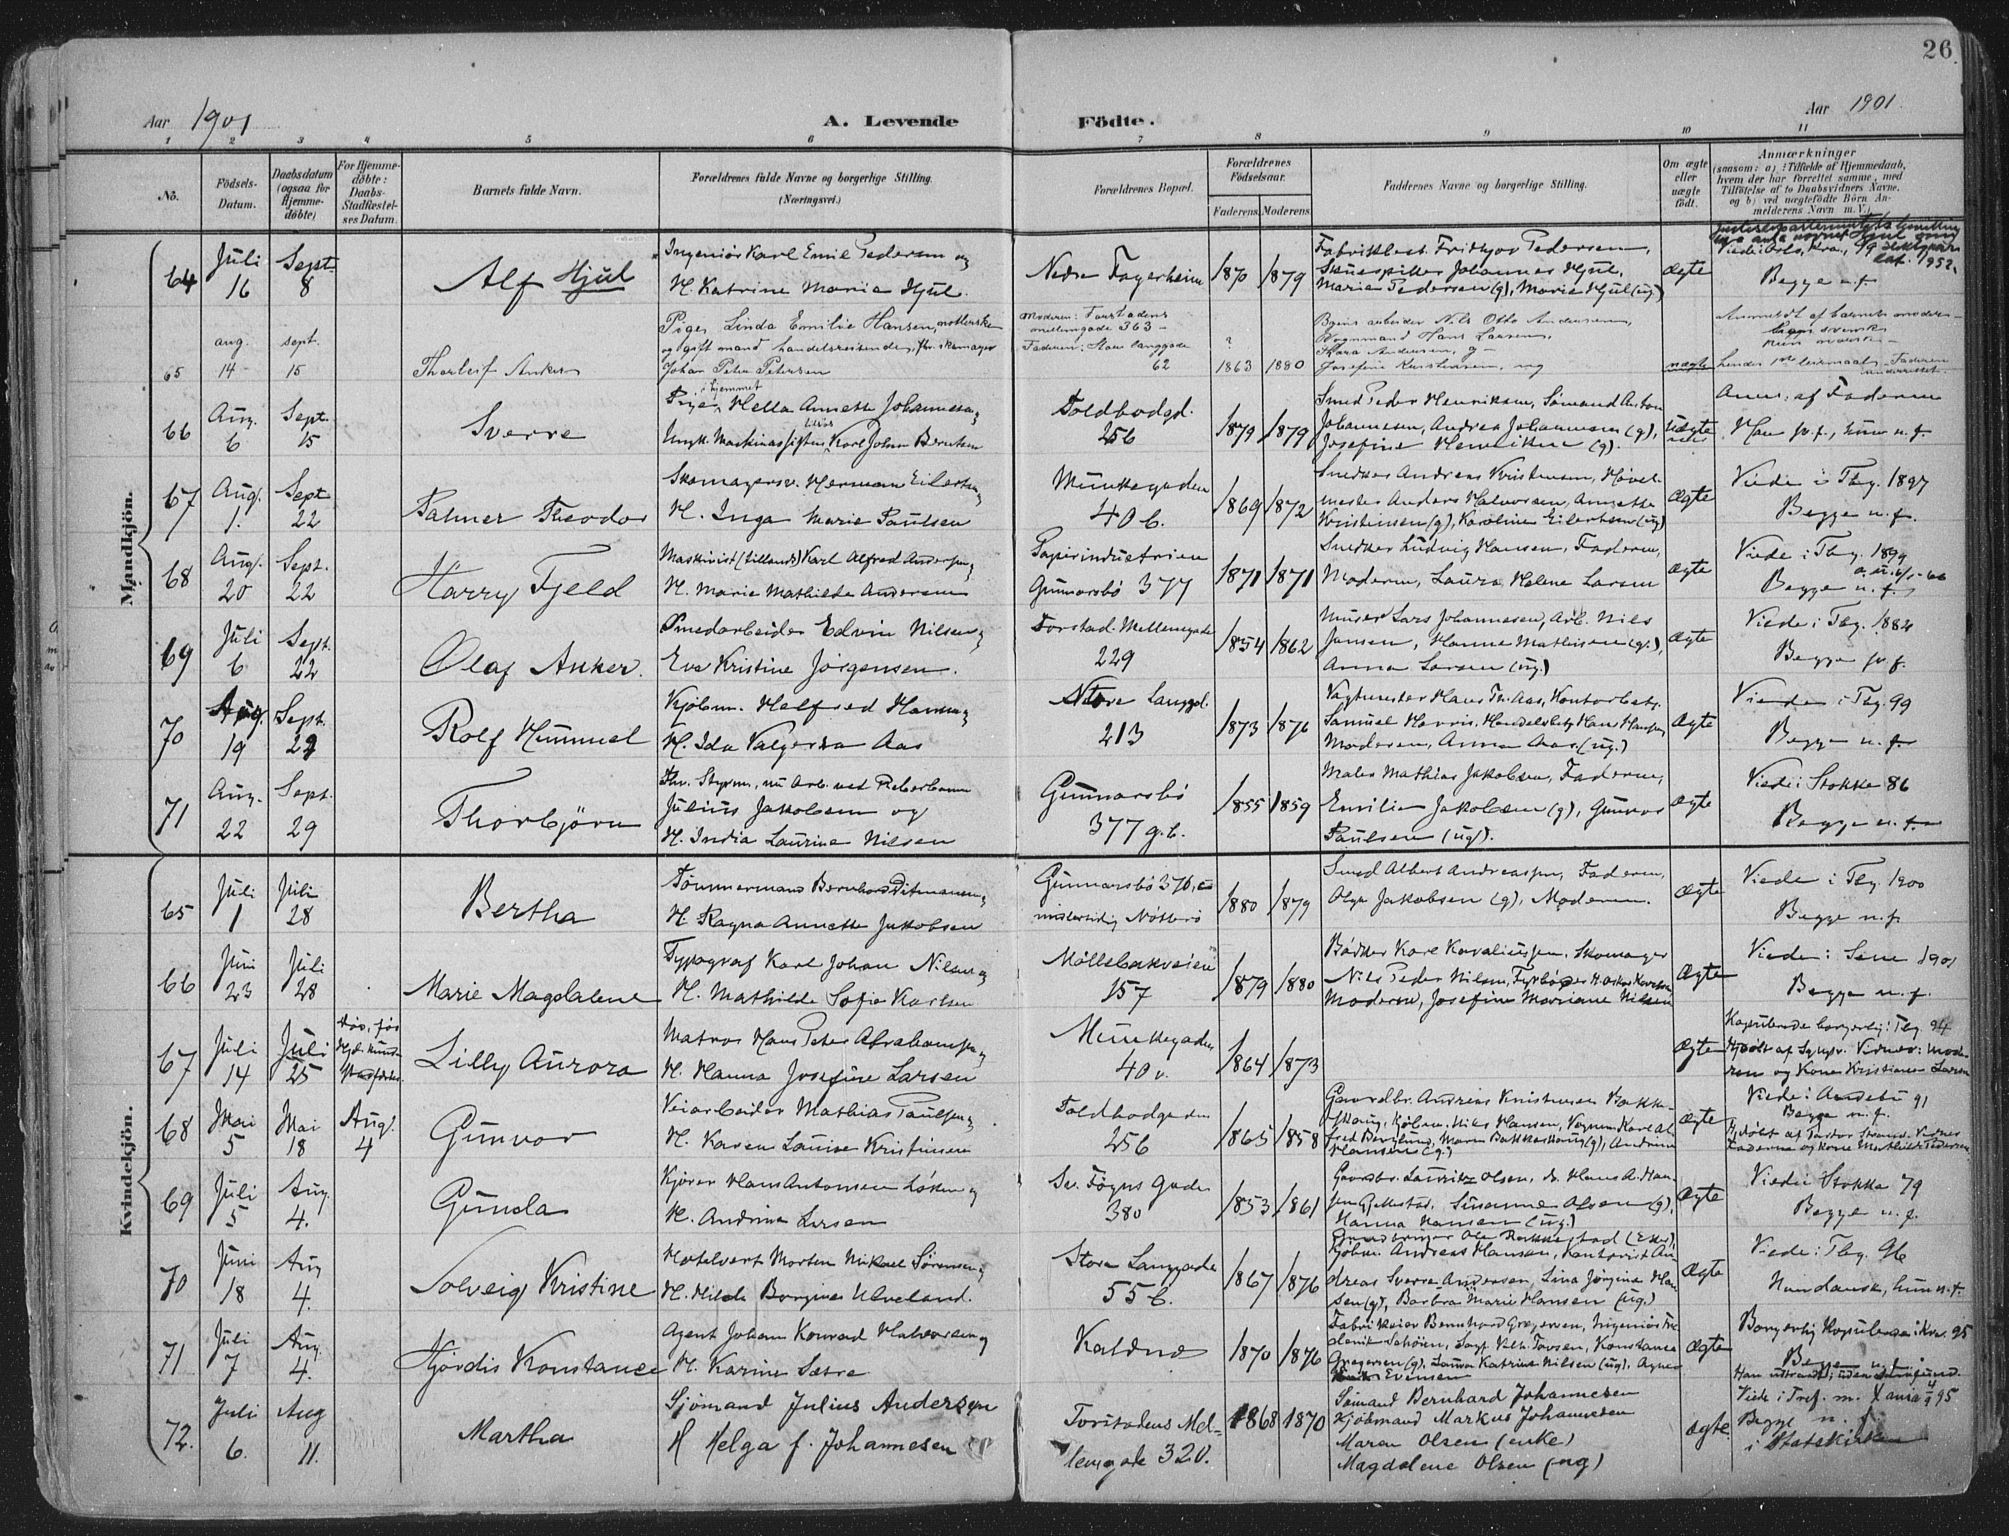 26
Aar 1901
A. Levende
Födte.
Aar 1901.
1 2 3 4 5 6 7 8 9 10 11
No.
Födsels-
Datum.
Daabsdatum
(ogsaa for
Hjemme-
döbte)
For Hjemme-
döbte:
Daabs-
Stadfæstel-
ses Datum.
Barnets fulde Navn.
Forældrenes fulde Navne og borgerlige Stilling.
(Næringsvei.)
Forældrenes Bopæl.
Forældrenes
Födselsaar.
Faderens. Moderens.
Faddernes Navne og borgerlige Stilling.
Om ægte
eller
uægte
födt.
Anmærkninger
(saasom: a) i Tilfælde af Hjemmedaab,
hvem der har forrettet samme, med
Tilföielse af to Daabsvidners Navne,
og b) ved uægtefödte Börn An-
melderens Navn m. V.)
Mandkjön.
64
Juli
16
Sept.
8
Alf Hjul
Ingeniör Karl Emil Pedersen og
H. Katrine Marie Hjul
Nedre Fagerheim
1870 1879
Fridtjov Pedersen,
Skuespiller Johannes Hjul,
Marie Pedersen (g), Marie Hjul (ug)
Ægte
Begge n.f.
65
aug.
14
sept.
15
Thorleif Anker
Pige Linda Emilie Hansen,
og gift mand handelsreisende, fhv. skomager
Johan Peter Petersen
Moderen: Forstadens
mellemgade 363
Faderen: Store langgade
62
?
1863 1880
Nils Otto Andersen,
Vognmand Hans Larsen,
uægte
Anmeldt af barnets moder
66
Aug.
6
Sept.
15
Sverre
Pige i hjemmet Hella Annette Johannesen
Karl Johan Berntsen
Toldbodgd.
256
1879 1879
Smed Peder Henriksen, Sömand Anton
Johannesen, Andrea Johannesen (g),
Josefine Henriksen (g).
Uægte
Anm. af Faderen
Han fr.f., hun n.f.
67
Aug.
1.
Sept.
22
Palmer Theodor
Skomagersv. Herman Eilertsen
H. Inga Marie Paulsen
Munkegaden
40 b.
1869 1872
Snedker Andreas Kristensen, Hövel-
mester Anders Halvorsen, Annette
Kristensen (g), Karoline Eilertsen (ug)
Ægte
Viede i Tbg. 1897
Begge n.f.
68
Aug.
20
Sept.
22
Harry Fjeld
Maskinist (tillands) Karl Alfred Andersen
H. Marie Mathilde Andersen
Papirindustrien
Gunnarsbö 377
1871 1871
Snedker Ludvig Hansen, Faderen,
Moderen, Laura Helene Larsen
Ægte
Viede i Tbg. 1899
Begge n.f.
69
Juli
6
Sept.
22
Olaf Anker.
Smedarbeider Edvin Nilsen
Eva Kristine Jörgensen.
Forstad. Mellemgade
229
1854 1862
Murer Lars Johannesen, Arb. Nils
Jansen, Hanne Mathisen (g.),
Anna Larsen (ug.)
Ægte
Viede i Tbg. 1882
Begge fr.f.
70
Aug.
19
Sept.
22
Rolf Hummel
Kjöbm. Halfred Hansen
H. Ida Valgerda Aas
Store Langgd.
213
1873 1876
Vagtmester Hans Th. Aas, Kontorbetj.
Samuel Harris, Handelsbetj. Hans Hansen,
Moderen, Anna Aas (ug.)
Ægte
Viede i Tbg. 99
Begge n.f.
71
Aug.
22
Sept.
29
Thorbjörn
Fhv. Styrm., nu Arb. ved Fiberbanen
Julius Jakobsen og
H. India Laurine Nilsen
Gunnarsbö
377 g.b.
1855 1859
Maler Mathias Jakobsen, Faderen,
Emilie Jakobsen (g), Gunvor
Paulsen (ug).
Ægte
Viede i Stokke 86
Begge n.f.
Kvindekjön.
65
Juli
1
Juli
28
Bertha
Tömmermand Bernhard Ditmansen
H. Ragna Annette Jakobsen
Gunnarsbö 376,
midlertidig Nötterö
1880 1879
Smed Albert Andreassen, Faderen,
Olga Jakobsen (g), Moderen.
Ægte
Viede i Tbg. 1900
Begge n.f.
66
Juni
23
Juli
28
Marie Magdalene
Typograf Karl Johan Nilsen
H. Mathilde Sofie Karlsen
Möllebakveien
157
1879 1880
Bödker Karl Kornelliussen, Skomager
Nils Peder Nilsen, Fyrböder
Moderen, Josefine Mariane Nilsen
Ægte
Viede i Sem 1901
Begge n.f.
67
Juli
14
Juli
25
Lilly Aurora
Matros Hans Peter Abrahamsen
H. Hanna Josefine Larsen
Munkegaden
40 v.
1864 1873
Ægte
Kopulerede borgerlig i Tbg. 94
Hjdöbt af Sygepl. Vidner: Mode-
ren og Kone Kristiane Larsen
68
Mai
5
Mai
18
Aug.
4
Gunvor
Veiarbeider Mathias Paulsen
H. Karen Laurine Kristensen
Toldbodgaden
256
1865 1858
Gaardbr. Andreas Kristensen Bakke-
skaug, Kjöbm. Nils Hansen, Vognm. Karl Al-
fred Berglund, Maren Bakkeskaug (g), Andrine
Hansen (g.)
Ægte
Viede i Andebu 91
Begge n.f.
Hjdöbt af Pastor Strand. Vidner
Faderen og Kone Mathilde Pedersen
69
Juli
5
Aug.
4.
Gunda
Kjörer Hans Antonsen Löken
H. Andrine Larsen
Sv. Föyns Gade
380
1853 1861
Gaardbr. Lauritz Olsen, do Hans A. Han-
sen Gjellestad, Susanne Olsen (g),
Hanna Hansen (ug.)
Ægte
Viede i Stokke 79
Begge n.f.
70
Juni
18
Aug
4.
Solveig Kristine
Hotelvert Morten Mikael Sörensen
H. Hilda Borgine Ulveland.
Store Langgade
55 b.
1867 1876
Kjöbm. Andreas Hansen, Kontorist An-
dreas Sverre Andersen, Lina Jörgine Han-
sen (g), Barbra Marie Hansen (ug.)
Ægte
Viede i Tbg. 96
Han dansk, hun n.f.
71
Juli
7
Aug.
4.
Hjördis Konstance
Agent Johan Konrad Halvorsen
H. Karine Sætre
Kaldnæs
1870 1876
Fabrikeier Bernhard Gregersen, Ingeniör Fre-
derik Schöien, Konstance
Gregersen (g), Laura Katrine Nilsen (ug), Agnes
Evensen
Ægte
Borgerlig kopulerede i Kra. 95
72.
Juli
6.
Aug
11.
Martha
Sjömand Julius Andersen
H Helga f. Johannesen
Forstadens Mel-
lemgade 320.
1868 1870
Sömand Bernhard Johannesen
Kjöbmand Markus Johannesen
Maren Olsen (enke)
Magdalene Olsen (ug)
Ægte.
Begge n.f.
i Statskirken